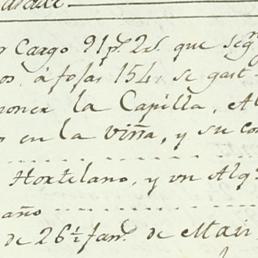 Cargo 91p.2s. que seg
os, á fojas 154, se gast
poner la Capilla, A
en la viña, y su co
Hortelano, y un Alq
año
de 26½ fan.s de Mai